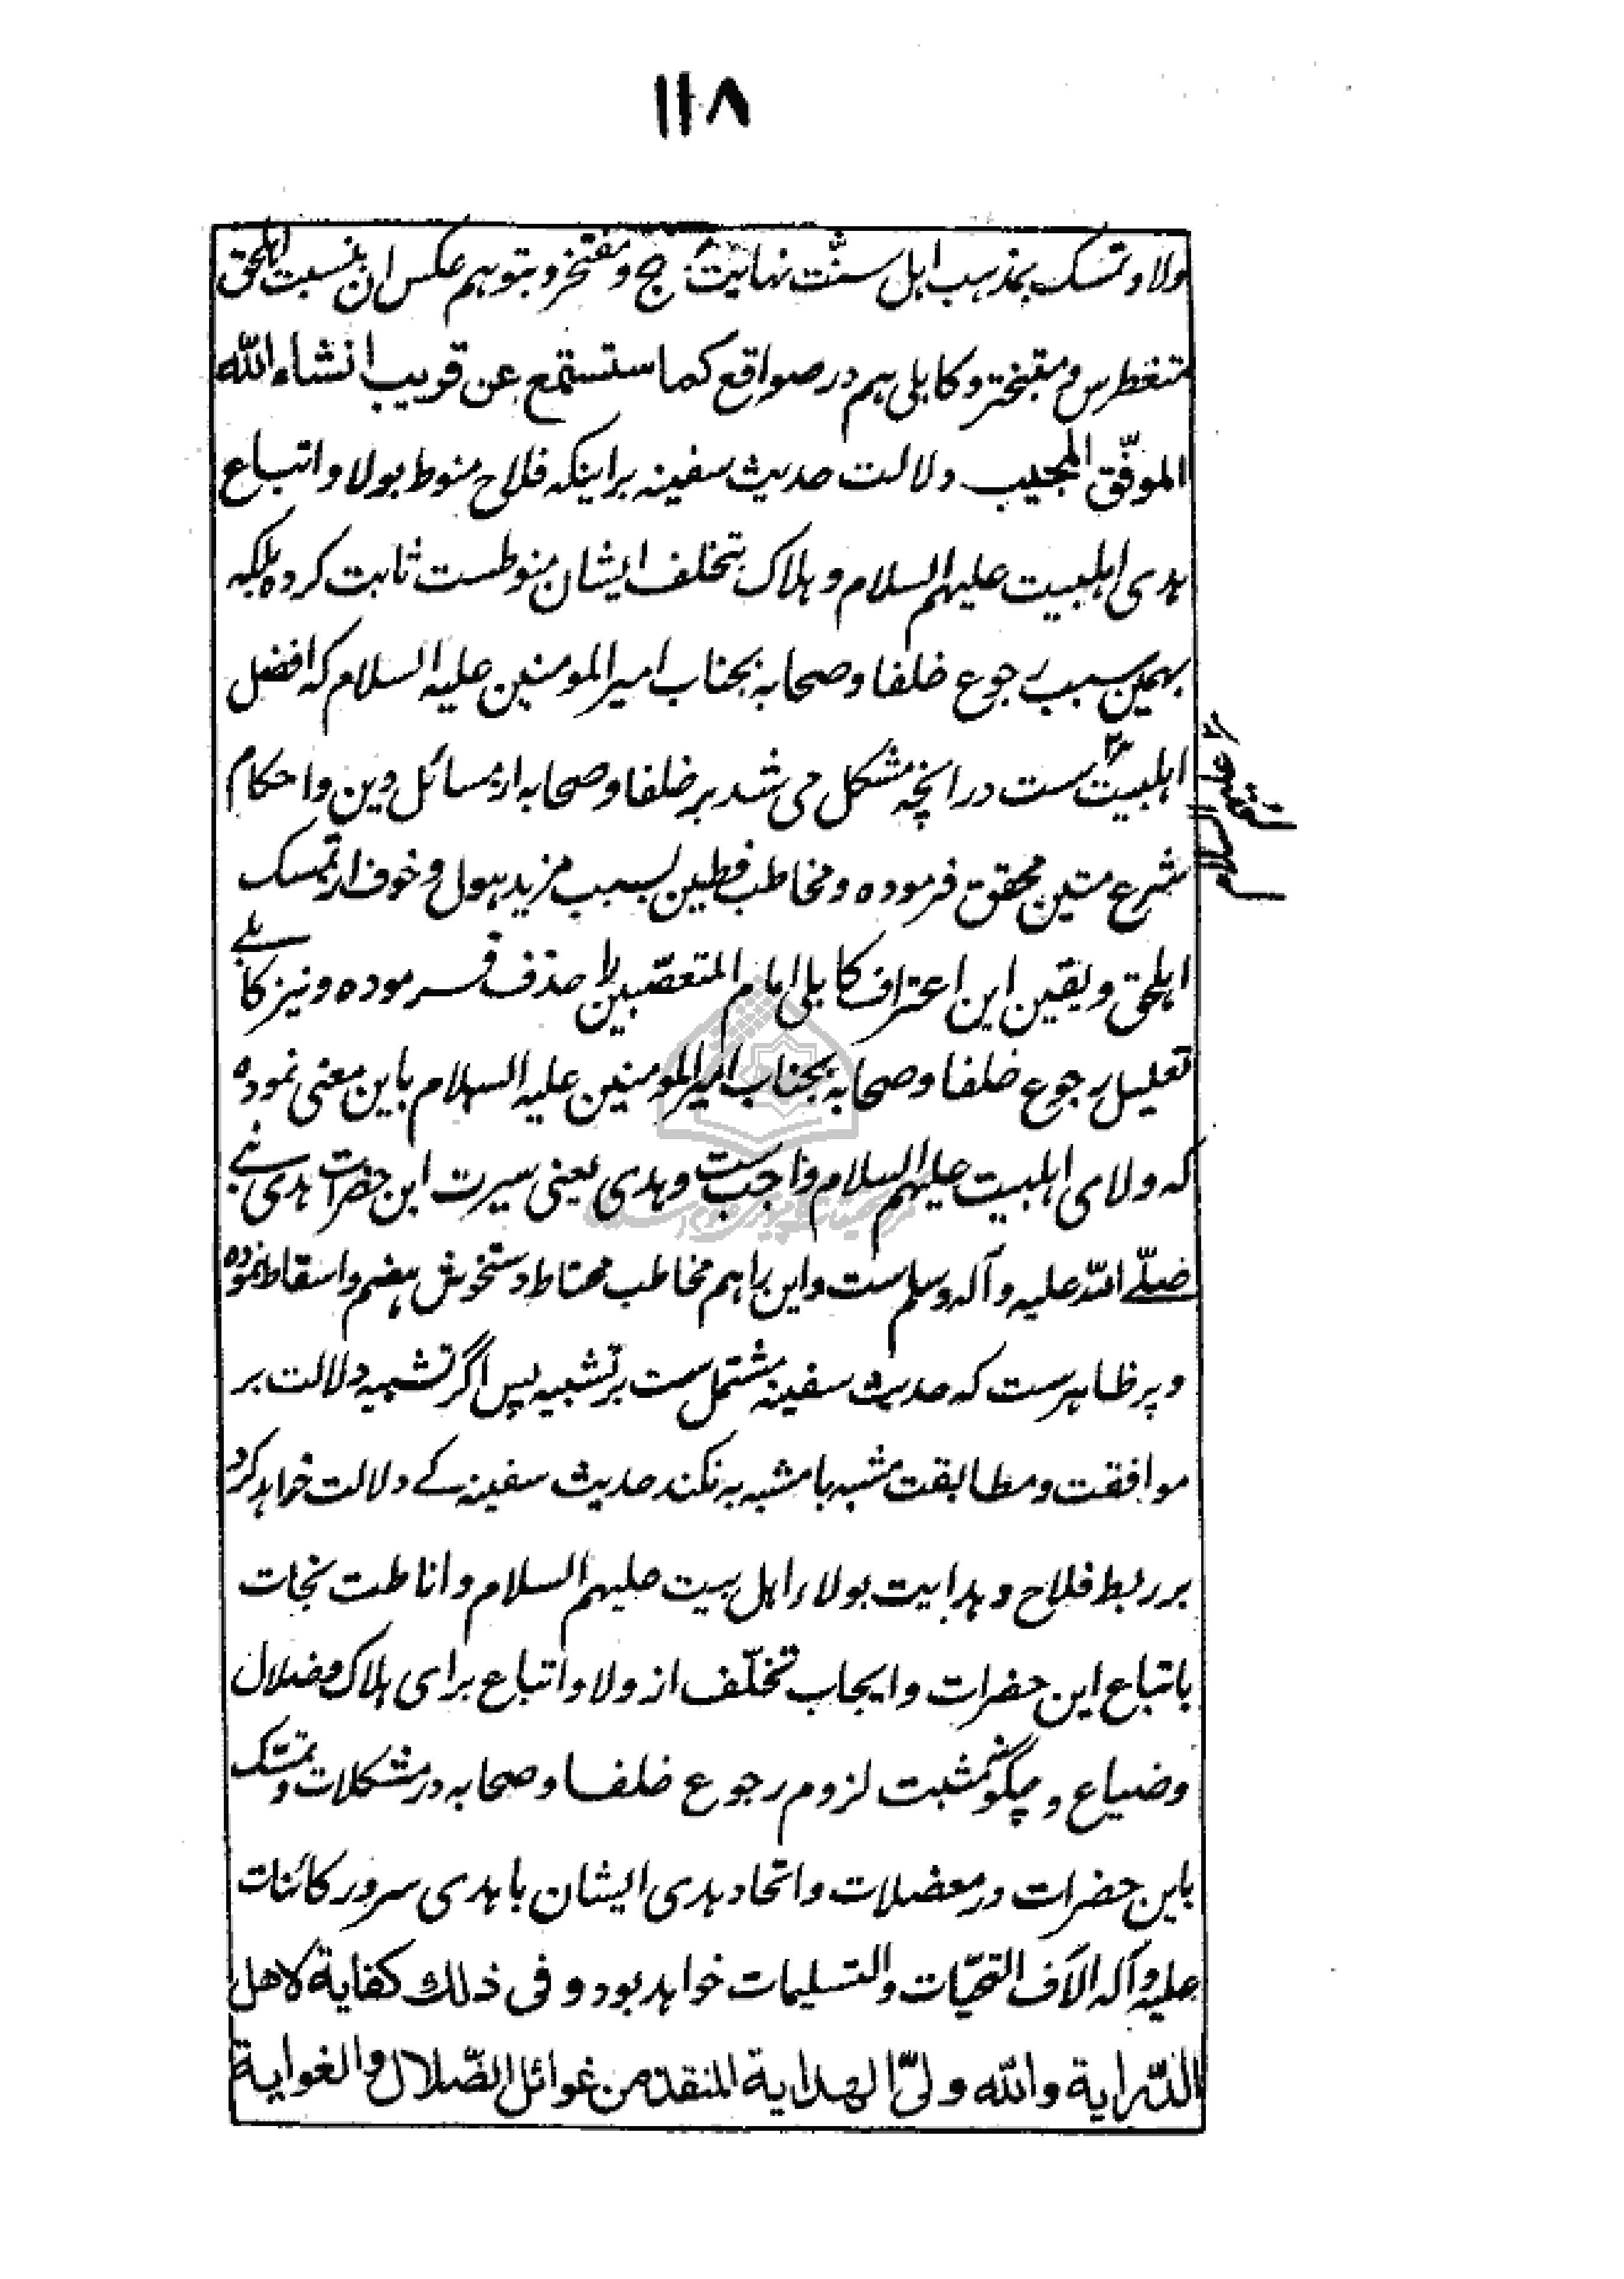 ۱۱۸
ولا و تمسک بمذهب اهل سنّت نهایت و مفتخر و بتوهم عکس ان بنسبت اهلحق
متغطرس و متبختر و کابلی هم در صواقع کما ستستمع عن قریب انشاء الله
الموفّق المجیب دلالت حدیث سفینه بر اینکه فلاح منوط بولا و اتباع
هدی اهلبیت علیهم السلام و هلاک بتخلف ایشان منوطست ثابت کرده بلکه
بهمین سبب رجوع خلفا و صحابه بجناب امیرالمومنین علیه السلام که افضل
اهلبیت ست در انچه مشکل می شد بر خلفا و صحابه از مسائل دین و احکام
شرع متین محقق فرموده و مخاطب فطین بسبب مزید هول و خوف از تمسک
اهلحق و یقین این اعتراف کابلی امام المتعصّبین را حذف فرموده و نیز کابلے
تعلیل رجوع خلفا و صحابه بجناب امیرالمومنین علیه السلام باین معنی نموده
که ولای اهلبیت علیهم السلام واجبست و هدی یعنی سیرت این حضرات هدی نبے
صلّے الله علیه و آله وسلم ست و این را هم مخاطب محتاط دستخوش هضم و اسقاط نموده
و پر ظاهرست که حدیث سفینه مشتمل ست بر تشبیه پس اگر تشبیه دلالت بر
موافقت و مطابقت مشبه با مشبه به نکند حدیث سفینه کے دلالت خواهد کرد
بر ربط فلاح و هدایت بولاء اهل بیت علیهم السلام و اناطت نجات
باتباع این حضرات و ایجاب تخلّف از ولا و اتباع برای هلاک و ضلال
و ضیاع و چگونه مثبت لزوم رجوع خلفا و صحابه در مشکلات و تمسّک
باین حضرات در معضلات و اتحاد هدی ایشان با هدی سرور کائنات
علیه و آله الآف التحیّات و التسلیمات خواهد بود و فی ذلك كفاية لاهل
الدّراية والله ولیّ الهداية المنقذ من غوائل الضّلال والغواية